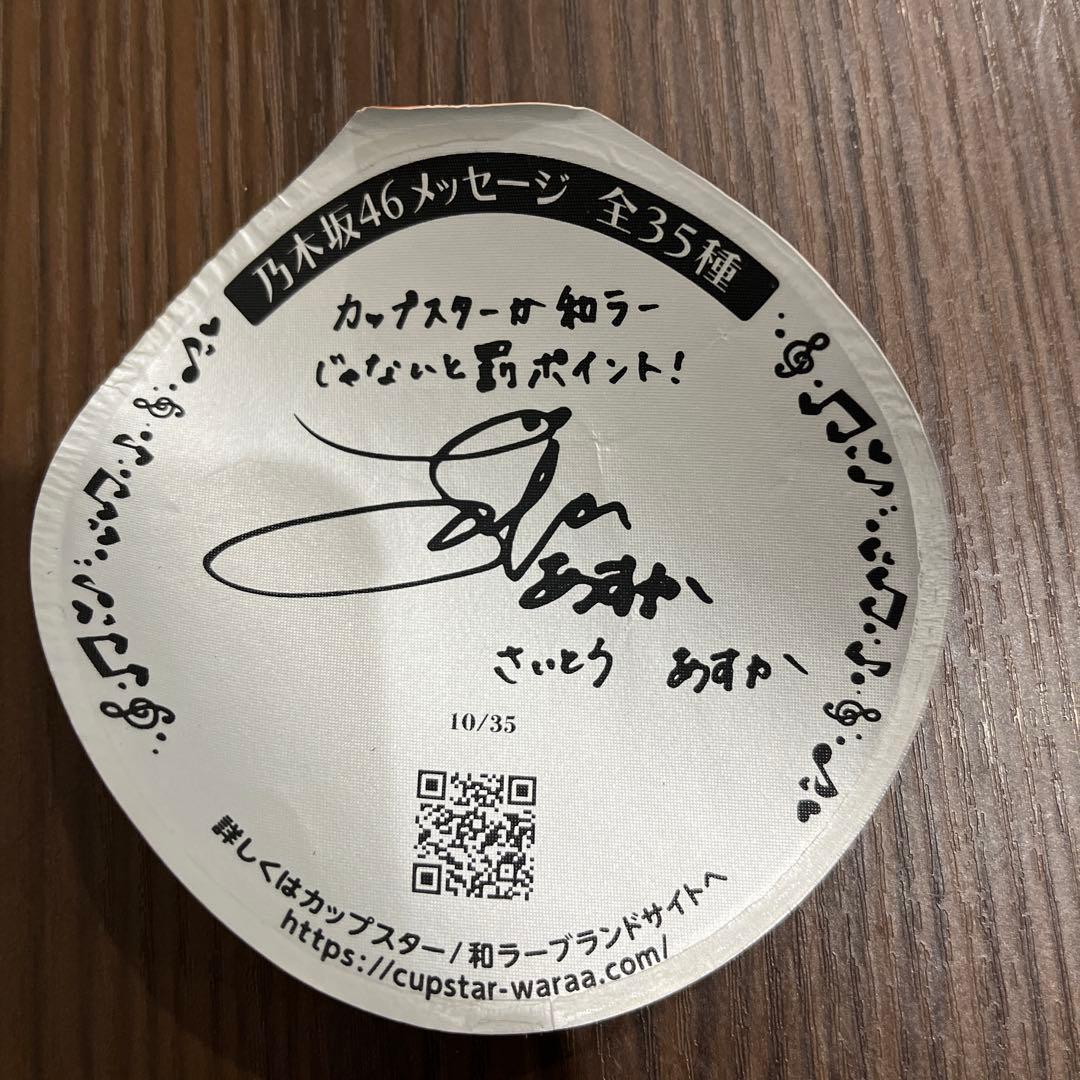 乃木坂46メッセージ 全35種
カップスターか和ラー
じゃないと罰ポイント!
あすか
さいとう あすか
10/35
詳しくはカップスター/和ラーブランドサイトへ
https://cupstar-waraa.com/